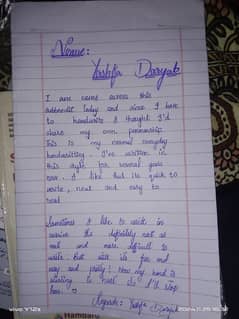 Name:
Yashfa Daryab
I am came across this
subreddit today and since I love
to handwrite I thought I'd
share my own penmanship.
This is my normal everyday
handwriting. I've written in
this style for several years
now. I like that its quick to
write, neat and easy to
read
Sometimes I like to write in
cursive its definitely not as
neat and more difficult to
write but still its fun and
easy and pretty! Now my hand is
starting to hurt so I'll stop
here.
Regards: Yashfa Daryab